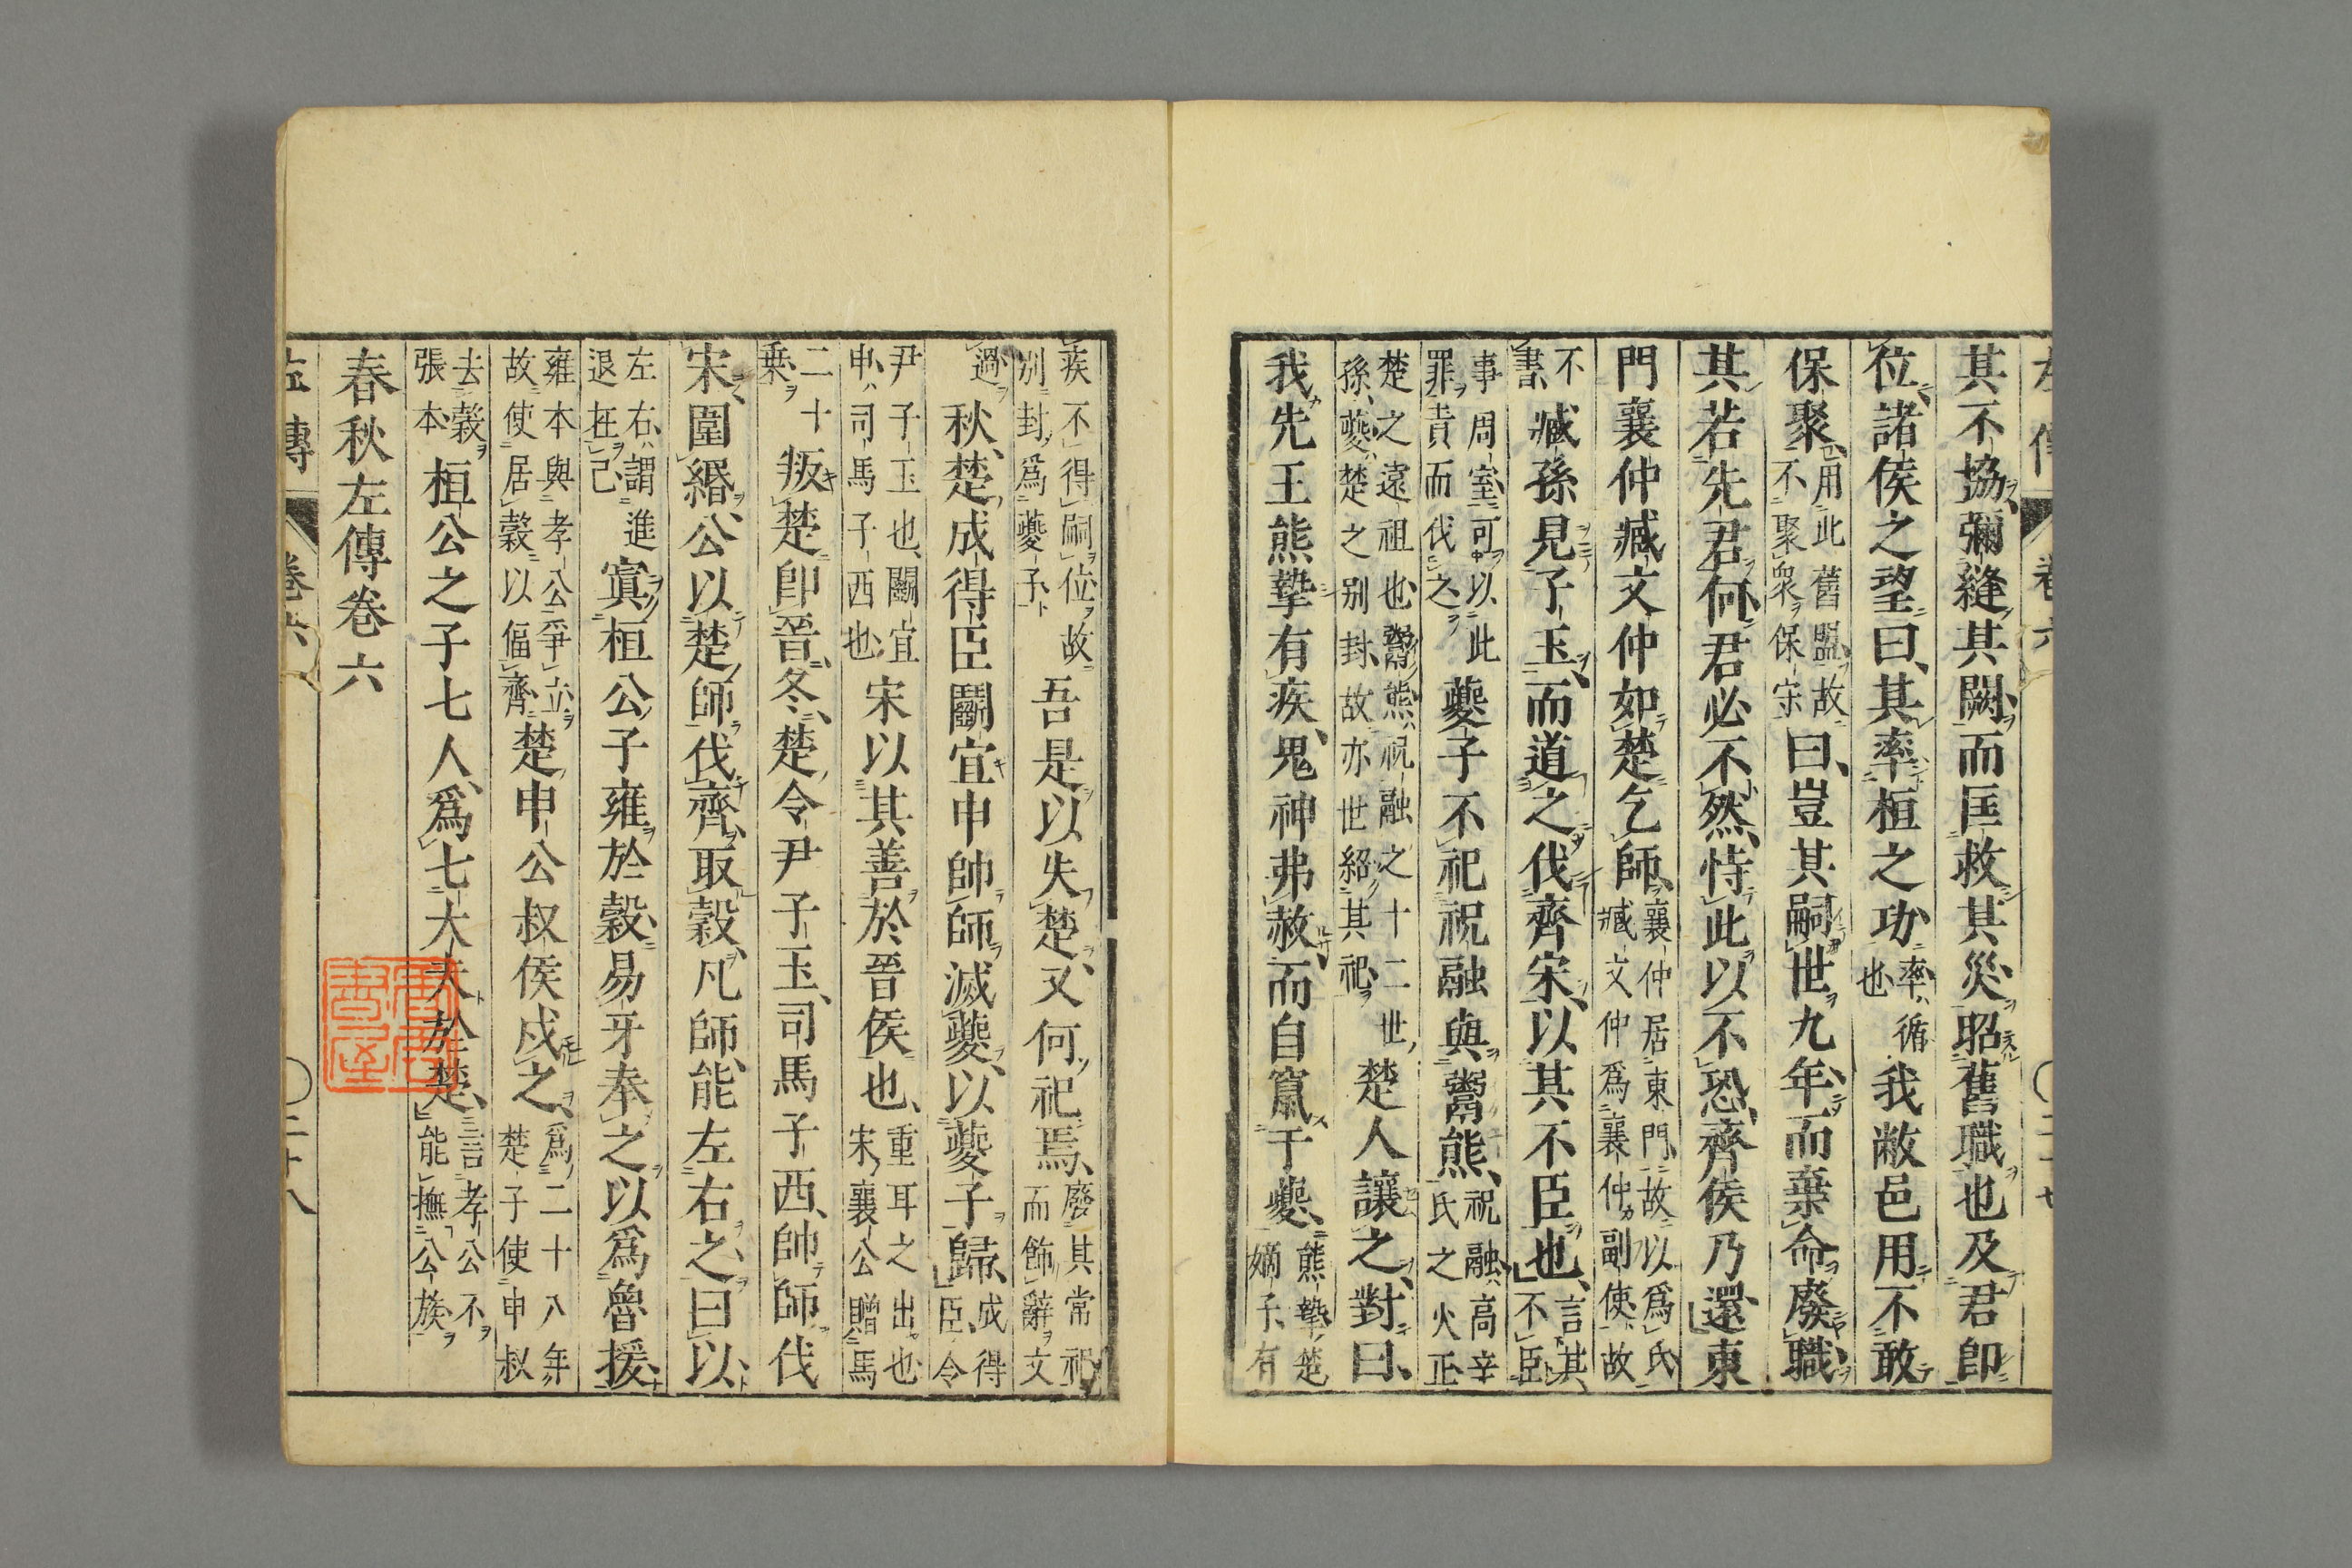 其不協彌縫其闕而匡救其災昭舊職也及君即
位諸侯之望曰其率桓之功率循也我敝邑用不敢
保聚用此舊盟故不聚衆保守曰豈其嗣世九年而棄命廢職
其若先君何君必不然恃此以不恐齊侯乃還東
門襄仲臧文仲如楚乞師襄仲居東門故以爲氏臧文仲爲襄仲副使故
不書臧孫見子玉而道之伐齊宋以其不臣也言其不臣
事周室可以此罪責而伐之夔子不祀祝融與鬻熊祝融高辛氏之火正
楚之遠祖也鬻熊祝融之十二世孫夔楚之別封故亦世紹其祀楚人讓之對曰
我先王熊摯有疾鬼神弗赦而自竄于夔熊摯楚嫡子有
疾不得嗣位故別封爲夔子吾是以失楚又何祀焉廢其常祀而飾辭文
過秋楚成得臣鬪宜申帥師滅夔以夔子歸成得臣令
尹子玉也鬪宜申司馬子西也宋以其善於晉侯也重耳之出也宋襄公贈馬
二十乘叛楚即晉冬楚令尹子玉司馬子西帥師伐
宋圍緡公以楚師伐齊取穀凡師能左右之曰以
左右謂進退在己寘桓公子雍於穀易牙奉之以爲魯援
雍本與孝公爭立故使居穀以偪齊楚申公叔侯戍之爲二十八年楚子使申叔
去穀張本桓公之子七人爲七大夫於楚言孝公不能撫公族
春秋左傳卷六
左傳 卷六 二十八